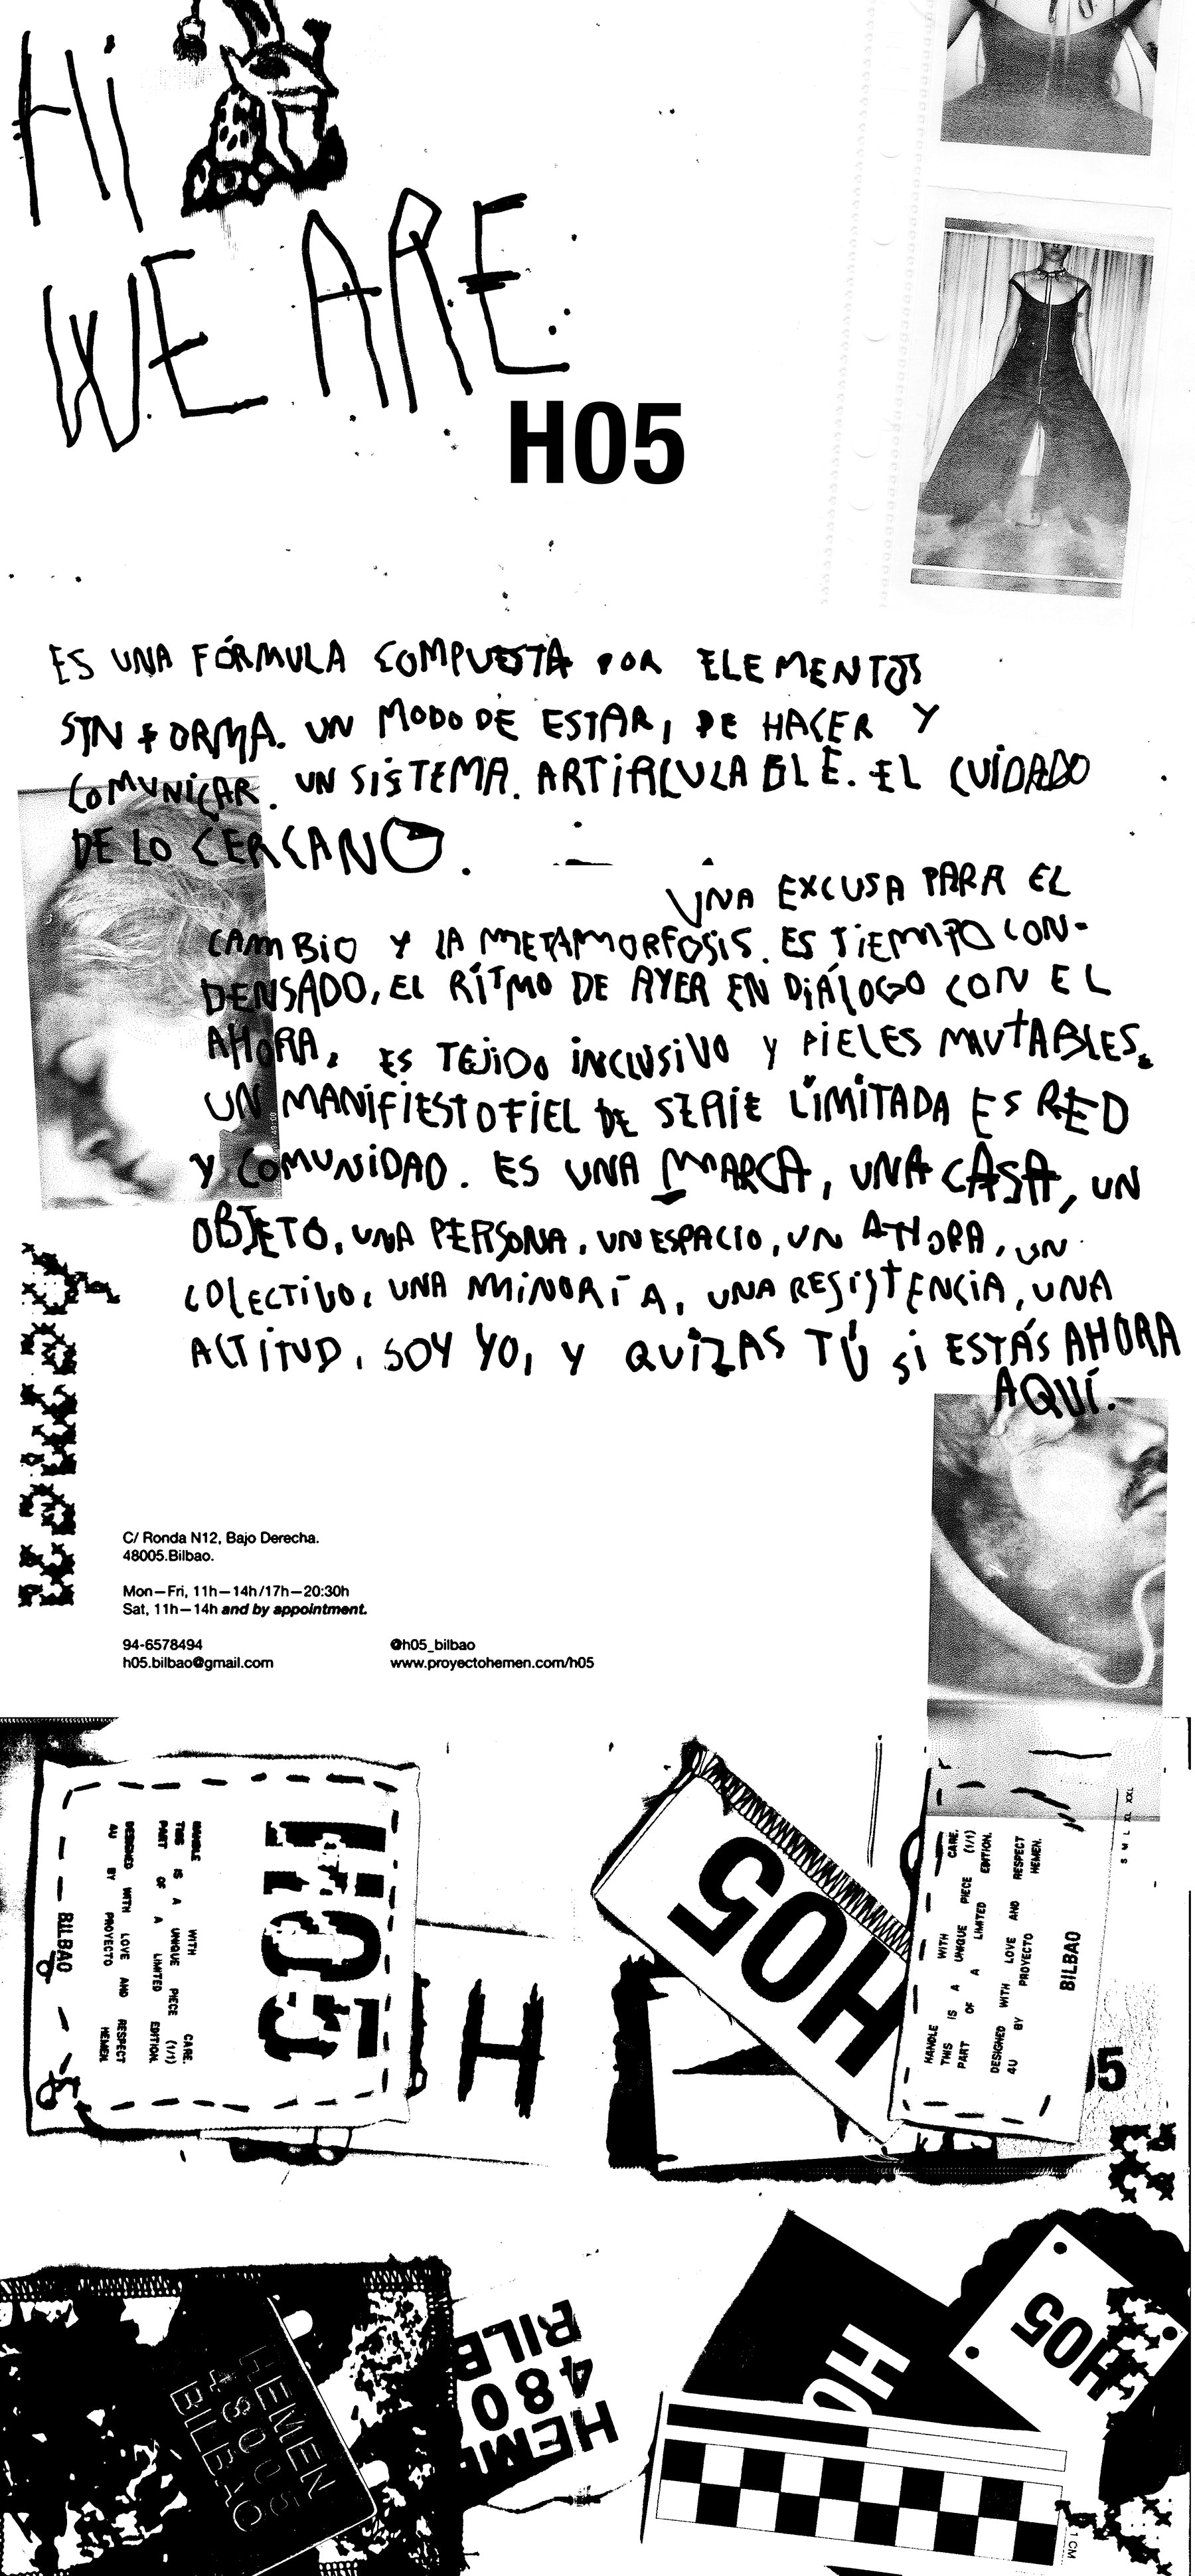 Hi
WE ARE.
H05
ES UNA FÓRMULA COMPUESTA POR ELEMENTOS
SIN FORMA. UN MODO DE ESTAR, DE HACER Y
COMUNICAR. UN SISTEMA. ARTIRCULABLE. EL CUIDADO
DE LO CERCANO.
UNA EXCUSA PARA EL
CAMBIO Y LA METAMORFOSIS. ES TIEMPO CON-
DENSADO, EL RÍTMO DE AYER EN DIÁLOGO CON EL
AHORA, ES TEJIDO INCLUSIVO Y PIELES MUTABLES.
UN MANIFIESTO FIEL DE SERIE LIMITADA ES RED
Y COMUNIDAD. ES UNA MARCA, UNA CASA, UN
OBJETO, UNA PERSONA, UN ESPACIO, UN AHORA, UN
COLECTIVO, UNA MINORÍA, UNA RESISTENCIA, UNA
ACTITUD, SOY YO, Y QUIZAS TÚ SI ESTÁS AHORA
AQUÍ.
C/ Ronda N12, Bajo Derecha.
48005.Bilbao.
Mon—Fri, 11h—14h/17h—20:30h
Sat, 11h—14h and by appointment.
94-6578494
h05.bilbao@gmail.com
@h05_bilbao
www.proyectohemen.com/h05
H05
HANDLE WITH CARE.
THIS IS A UNIQUE PIECE (1/1)
PART OF A LIMITED EDITION.
DESIGNED WITH LOVE AND RESPECT
4U BY PROYECTO HEMEN.
BILBAO
H
H05
HANDLE WITH CARE.
THIS IS A UNIQUE PIECE (1/1)
PART OF A LIMITED EDITION.
DESIGNED WITH LOVE AND RESPECT
4U BY PROYECTO HEMEN.
BILBAO
S M L XL XXL
05
HEMEN
48005
BILBAO
HEM
480
BILB
H0
H05
1 CM